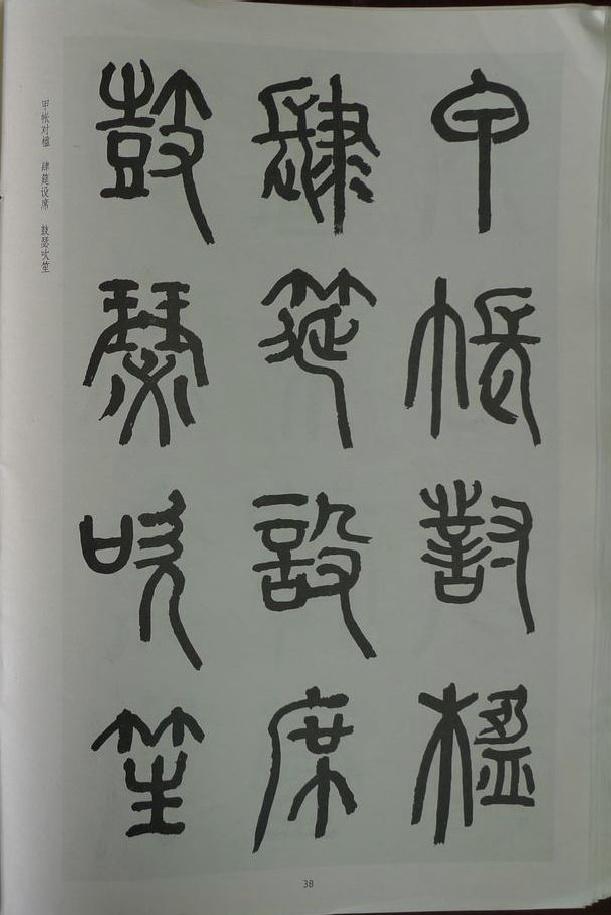 甲帐对楹
肆筵設席
鼓瑟吹笙
甲帐对楹 肆筵设席 鼓瑟吹笙
38